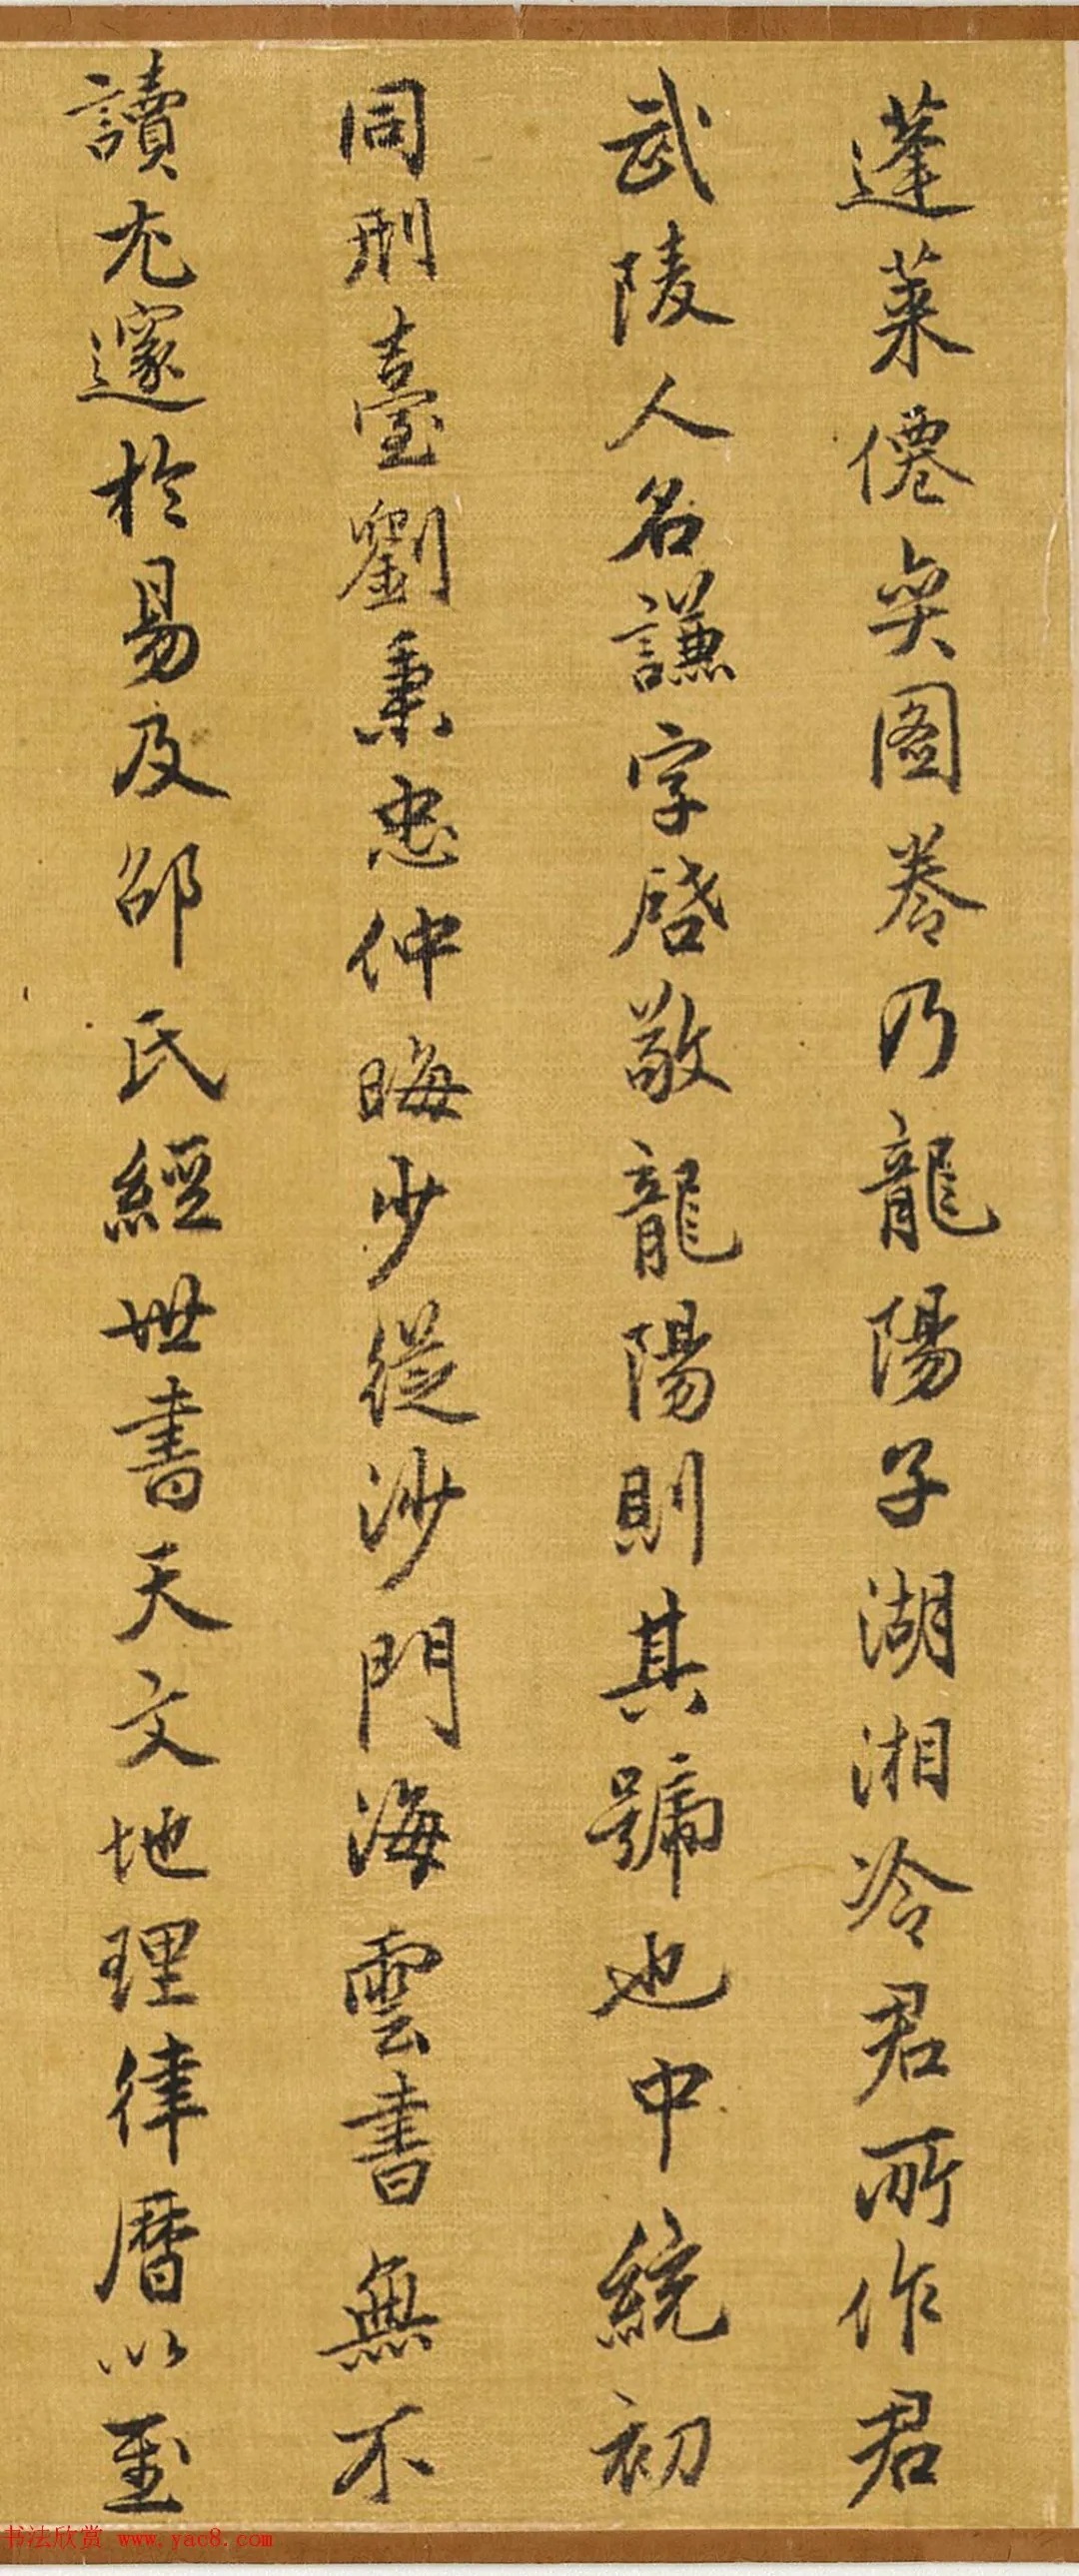 蓬萊僊奕圖卷乃龍陽子湖湘冷君所作君
武陵人名謙字啓敬龍陽則其號也中統初
同刑臺劉秉忠仲晦少從沙門海雲書無不
讀尤邃於易及邵氏經世書天文地理律曆以至
书法欣赏 www.yac8.com